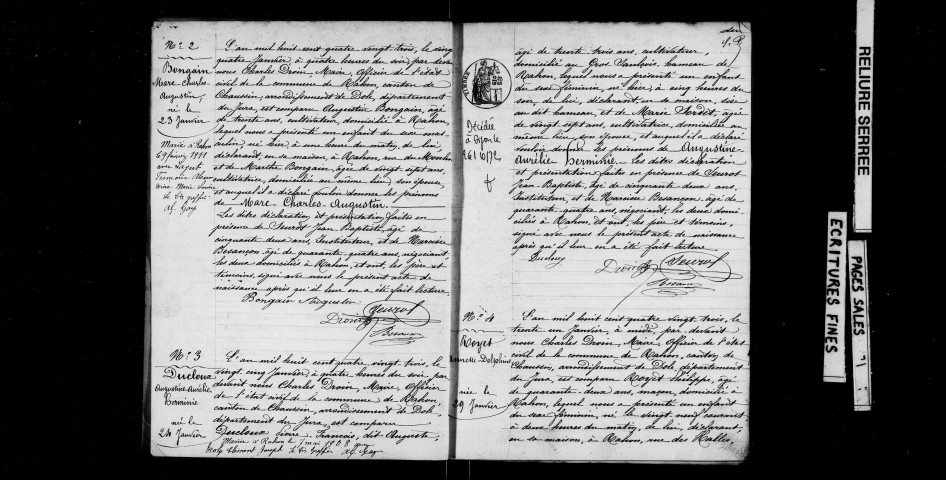 Nº 2
Bongain
Marc-Charles-
Augustin,
né le
23 Janvier
Marié à Rahon
L'an mil huit cent quatre vingt trois, le vingt
quatre Janvier, à quatre heures du soir, par devant
nous Charles Droin, Maire, Officier de l'état
civil de la commune de Rahon, canton de
Chaussin, arrondissement de Dole, département
du Jura, est comparu Augustin Bongain, âgé
de trente ans, cultivateur, domicilié à Rahon,
lequel nous a présenté un enfant du sexe mas-
culin, né hier, à une heure du matin, de lui,
déclarant, en sa maison, à Rahon, rue du Moulin
et de Marthe Bongain, âgée de vingt sept ans,
cultivatrice, domiciliée au même lieu, son épouse,
et auquel il a déclaré vouloir donner les prénoms
de Marc-Charles-Augustin.
Les dites déclaration et présentation faites en
présence de Jeurot Jean Baptiste, âgé de
cinquante deux ans, Instituteur, et de Narcisse
Besançon, âgé de quarante quatre ans, négociant,
les deux domiciliés à Rahon, et ont, les père et
témoins, signé avec nous le présent acte de
naissance après qu'il leur en a été fait lecture.
Bongain Augustin
Droin
Jeurot
Nº 3
Ducloux
Augustine-Aurélie
Herminie
née le
24 Janvier
L'an mil huit cent quatre vingt trois, le
vingt cinq Janvier, à quatre heures du soir, par
devant nous Charles Droin, Maire, Officier
de l'état civil de la commune de Rahon,
canton de Chaussin, arrondissement de Dole,
département du Jura, est comparu
Ducloux Pierre, François, dit Auguste,
Mariée à Rahon le mai 1908
âgé de trente trois ans, cultivateur,
domicilié au hameau de
Rahon, lequel nous a présenté un enfant
du sexe féminin, né hier, à cinq heures du
soir, de lui, déclarant, en sa maison, sise
au dit hameau, et de Marie
de vingt sept ans, cultivatrice, domiciliée au
même lieu, son épouse, et auquel il a déclaré
vouloir donner les prénoms de Augustine-
Aurélie Herminie. Les dites déclaration
et présentation faites en présence de Jeurot
Jean Baptiste, âgé de cinquante deux ans,
Instituteur, et de Narcisse Besançon, âgé de
quarante quatre ans, négociant, les deux domi-
ciliés à Rahon, et ont, les père et témoins,
signé avec nous le présent acte de naissance
après qu'il leur en a été fait lecture.
Droin
Jeurot
Décédée
à Dijon le
Nº 4
Royet
Delphine
née le
29 Janvier
L'an mil huit cent quatre vingt trois, le
trente un Janvier, à midi, par devant
nous Charles Droin, Maire, Officier de l'état
civil de la commune de Rahon, canton de
Chaussin, arrondissement de Dole, département
du Jura, est comparu Royet Philippe, âgé
de quarante-deux ans, maçon, domicilié à
Rahon, lequel nous a présenté un enfant
du sexe féminin, né le vingt neuf courant
à deux heures du matin, de lui, déclarant,
en sa maison, à Rahon, rue des Halles,
RELIURE SERREE
PAGES SALES
ECRITURES FINES